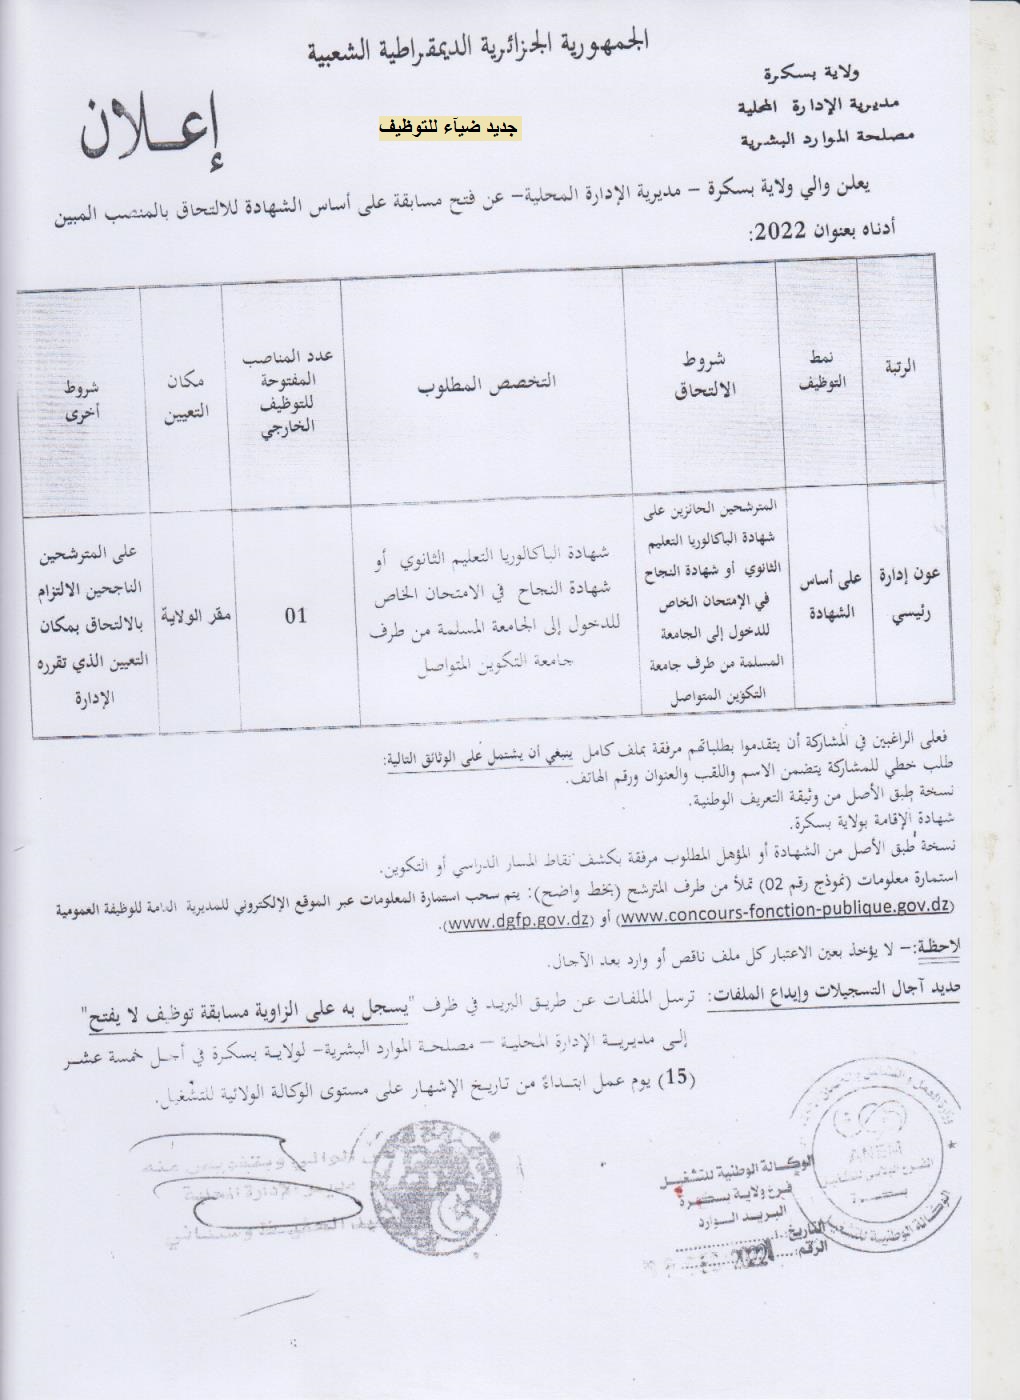 الجمهورية الجزائرية الديمقراطية الشعبية
ولاية بسكرة
مديرية الإدارة المحلية
مصلحة الموارد البشرية
جديد ضيآء للتوظيف
إعلان
يعلن والي ولاية بسكرة – مديرية الإدارة المحلية– عن فتح مسابقة على أساس الشهادة للالتحاق بالمنصب المبين
أدناه بعنوان 2022:
الرتبة
نمط
التوظيف
شروط
الالتحاق
التخصص المطلوب
عدد المناصب
المفتوحة
للتوظيف
الخارجي
مكان
التعيين
شروط
أخرى
عون إدارة
رئيسي
على أساس
الشهادة
المترشحين الحائزين على
شهادة الباكالوريا التعليم
الثانوي أو شهادة النجاح
في الإمتحان الخاص
للدخول إلى الجامعة
المسلمة من طرف جامعة
التكوين المتواصل
شهادة الباكالوريا التعليم الثانوي أو
شهادة النجاح في الامتحان الخاص
للدخول إلى الجامعة المسلمة من طرف
جامعة التكوين المتواصل
01
مقر الولاية
على المترشحين
الناجحين الالتزام
بالالتحاق بمكان
التعيين الذي تقرره
الإدارة
فعلى الراغبين في المشاركة أن يتقدموا بطلباتهم مرفقة بملف كامل ينبغي أن يشتمل على الوثائق التالية:
طلب خطي للمشاركة يتضمن الاسم واللقب والعنوان ورقم الهاتف.
نسخة طبق الأصل من وثيقة التعريف الوطنية.
شهادة الإقامة بولاية بسكرة.
نسخة طبق الأصل من الشهادة أو المؤهل المطلوب مرفقة بكشف نقاط المسار الدراسي أو التكوين.
استمارة معلومات (نموذج رقم 02) تملأ من طرف المترشح (بخط واضح): يتم سحب استمارة المعلومات عبر الموقع الإلكتروني للمديرية العامة للوظيفة العمومية
(www.concours-fonction-publique.gov.dz) أو (www.dgfp.gov.dz).
لاحظة:– لا يؤخذ بعين الاعتبار كل ملف ناقص أو وارد بعد الآجال.
حديد آجال التسجيلات وإيداع الملفات: ترسل الملفات عن طريق البريد في ظرف "يسجل به على الزاوية مسابقة توظيف لا يفتح"
إلى مديرية الإدارة المحلية – مصلحة الموارد البشرية– لولاية بسكرة في أجل خمسة عشر
(15) يوم عمل ابتداءً من تاريخ الإشهار على مستوى الوكالة الولائية للتشغيل.
الوالي وبتفويض منه
مدير الإدارة المحلية
ANEM
بسكرة
الوكالة الوطنية للتشغيل
فرع ولاية بسكرة
البريد الوارد
التاريخ:
الرقم: